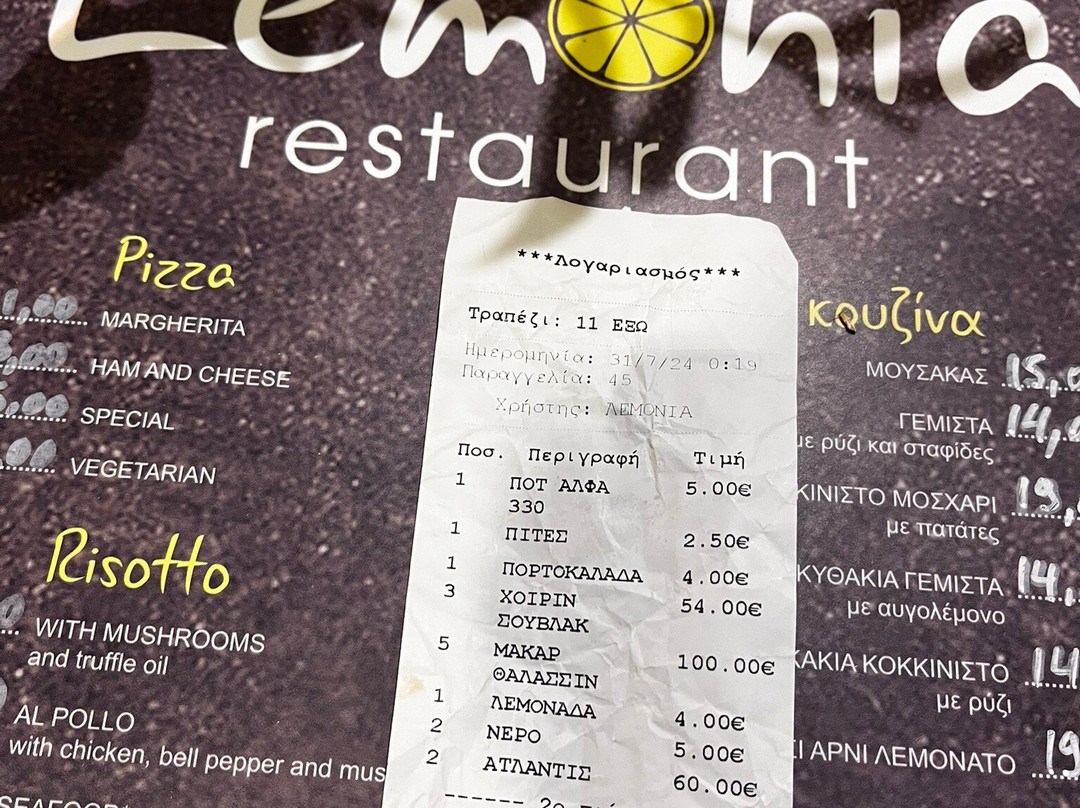 Lemonia
restaurant
Pizza
MARGHERITA
HAM AND CHEESE
SPECIAL
VEGETARIAN
Risotto
WITH MUSHROOMS
and truffle oil
AL POLLO
with chicken, bell pepper and mus
***Λογαριασμός***
Τραπέζι: 11 ΕΞΩ
Ημερομηνία: 31/7/24 0:19
Παραγγελία: 45
Χρήστης: ΛΕΜΟΝΙΑ
Ποσ. Περιγραφή Τιμή
1 ΠΟΤ ΑΛΦΑ 5.00€
330
1 ΠΙΤΕΣ 2.50€
1 ΠΟΡΤΟΚΑΛΑΔΑ 4.00€
3 ΧΟΙΡΙΝ 54.00€
ΣΟΥΒΛΑΚ
5 ΜΑΚΑΡ 100.00€
ΘΑΛΑΣΣΙΝ
1 ΛΕΜΟΝΑΔΑ 4.00€
2 ΝΕΡΟ 5.00€
2 ΑΤΛΑΝΤΙΣ 60.00€
κουζίνα
ΜΟΥΣΑΚΑΣ 15,0
ΓΕΜΙΣΤΑ 14,0
με ρύζι και σταφίδες
ΚΙΝΙΣΤΟ ΜΟΣΧΑΡΙ 19,
με πατάτες
ΚΥΘΑΚΙΑ ΓΕΜΙΣΤΑ 14,
με αυγολέμονο
ΚΑΚΙΑ ΚΟΚΚΙΝΙΣΤΟ 14
με ρύζι
ΑΡΝΙ ΛΕΜΟΝΑΤΟ 19